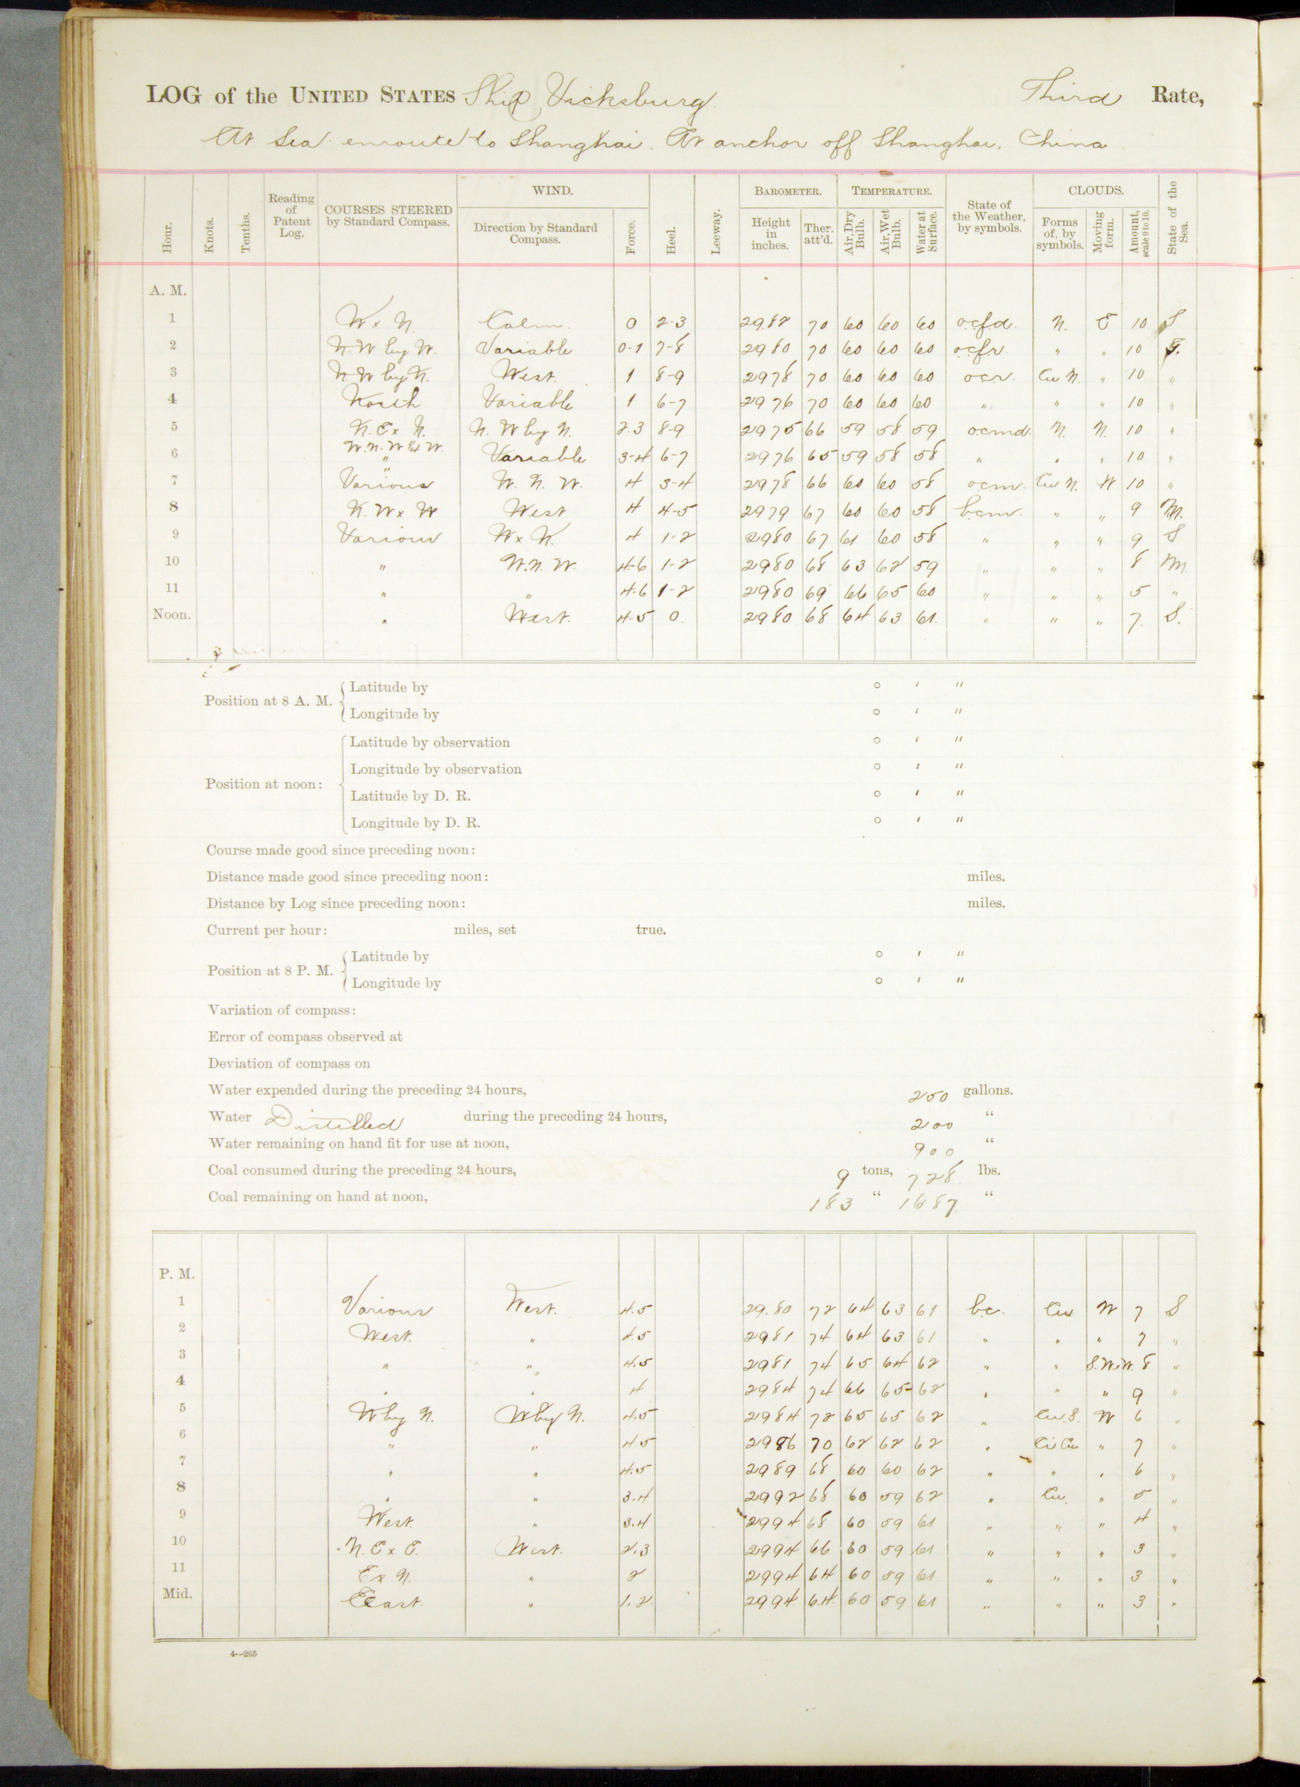 LOG of the UNITED STATES Ship Vicksburg. Third Rate,
At Sea enroute to Shanghai. At anchor off Shanghai, China.
Hour. Knots. Tenths. Reading of Patent Log. COURSES STEERED by Standard Compass. WIND. Direction by Standard Compass. Force. Heel. Leeway. BAROMETER. Height in inches. Ther. att'd. TEMPERATURE. Air, Dry Bulb. Air, Wet Bulb. Water at Surface. State of the Weather, by symbols. CLOUDS. Forms of, by symbols. Moving form. Amount, scale 0 to 10. State of the Sea.
A. M.
1 W x N. Calm. 0 2-3 2982 70 60 60 60 ocfd. N. E 10 S
2 N.W by W. Variable 0-1 7-8 2980 70 60 60 60 ocfr " " 10 S.
3 N W by N. West. 1 8-9 2978 70 60 60 60 ocr. Cu N. " 10 "
4 North Variable 1 6-7 2976 70 60 60 60 " " " 10 "
5 N. E x N. N. W by N. 2-3 8-9 2975 66 59 58 59 ocmd. N. N. 10 "
W.N.W & W.
6 " Variable 3-4 6-7 2976 65 59 58 58 " " " 10 "
7 Various W. N. W. 4 3-4 2978 66 60 60 58 ocm. Cu N. W 10 "
8 N. W x W West 4 4-5 2979 67 60 60 58 bcm. " " 9 M.
9 Various W x N. 4 1-2 2980 67 61 60 58 " " " 9 S
10 " W.N.W. 4-6 1-2 2980 68 63 62 59 " " " 8 M.
11 " " 4-6 1-2 2980 69 66 65 60 " " " 5 "
Noon. " West. 4-5 0. 2980 68 64 63 61. " " " 7. S.
Position at 8 A. M. Latitude by ° ′ ″
Longitude by ° ′ ″
Position at noon: Latitude by observation ° ′ ″
Longitude by observation ° ′ ″
Latitude by D. R. ° ′ ″
Longitude by D. R. ° ′ ″
Course made good since preceding noon:
Distance made good since preceding noon: miles.
Distance by Log since preceding noon: miles.
Current per hour: miles, set true.
Position at 8 P. M. Latitude by ° ′ ″
Longitude by ° ′ ″
Variation of compass:
Error of compass observed at
Deviation of compass on
Water expended during the preceding 24 hours, 200 gallons.
Water Distilled during the preceding 24 hours, 200 "
Water remaining on hand fit for use at noon, 900 "
Coal consumed during the preceding 24 hours, 9 tons, 728 lbs.
Coal remaining on hand at noon, 183 " 1687 "
P. M.
1 Various West. 4.5 29.80 72 64 63 61 bc. Cu W 7 S
2 West. " 4.5 2981 74 64 63 61 " " " 7 "
3 " " 4.5 2981 74 65 64 62 " " 8 "
4 " " 4 2984 74 66 65 62 " " " 9 "
5 W by N. W by N. 4.5 2984 72 65 65 62 " Cu.S. W 6 "
6 " " 4.5 2986 70 62 62 62 " Ci Cu " 7 "
7 " " 4.5 2989 68 60 60 62 " " " 6 "
8 " " 3.4 2992 68 60 59 62 " Cu. " 5 "
9 West. " 3.4 2994 68 60 59 61 " " " 4 "
10 N. E x E. West. 2.3 2994 66 60 59 61 " " " 3 "
11 E x N. " 2 2994 64 60 59 61 " " " 3 "
Mid. East. " 1.2 2994 64 60 59 61 " " " 3 "
4—205